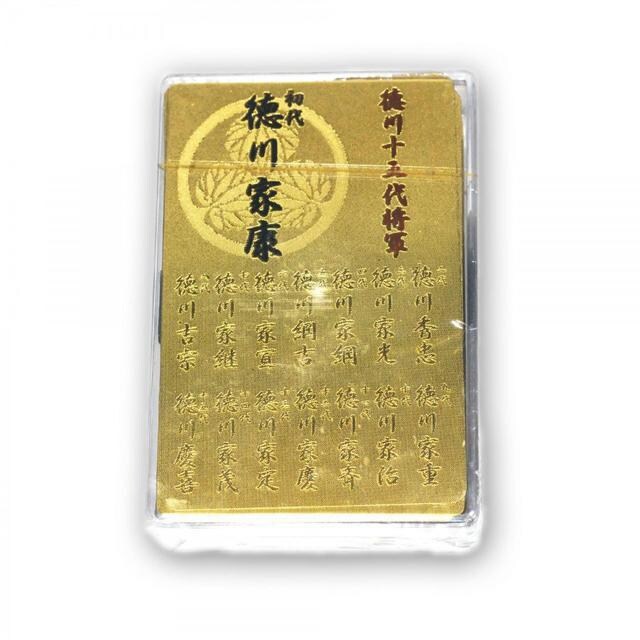 徳川十五代将軍
初代
徳川家康
二代
徳川秀忠
三代
徳川家光
四代
徳川家綱
五代
徳川綱吉
六代
徳川家宣
七代
徳川家継
八代
徳川吉宗
九代
徳川家重
十代
徳川家治
十一代
徳川家斉
十二代
徳川家慶
十三代
徳川家定
十四代
徳川家茂
十五代
徳川慶喜